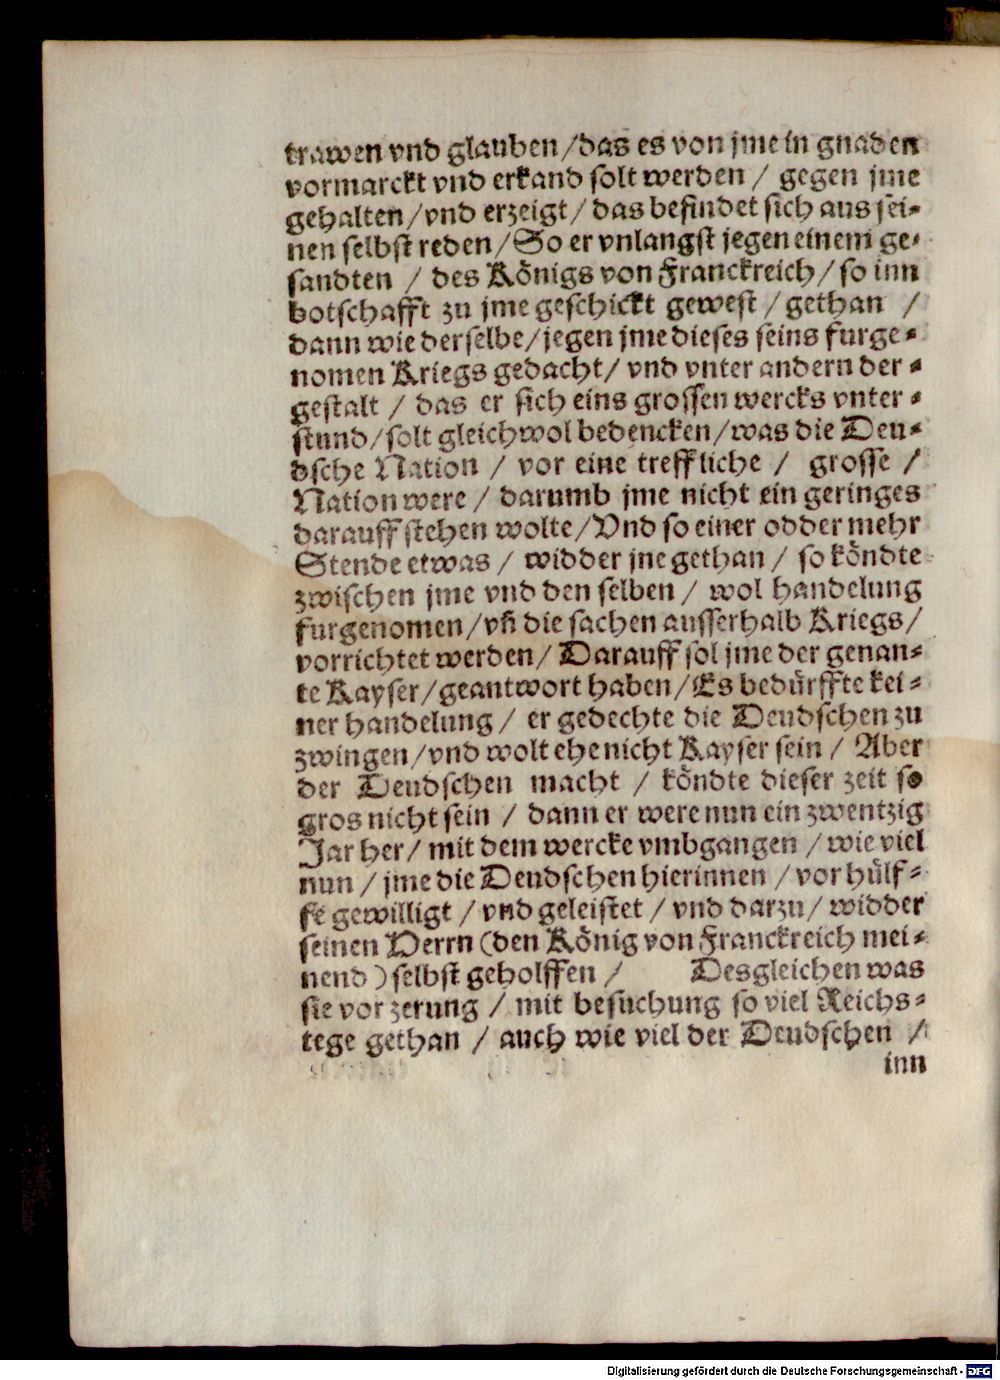 trawen vnd glauben /das es von jme in gnaden
vormarckt vnd erkand solt werden / gegen jme
gehalten/vnd erzeigt/ das befindet sich aus sei⸗
nen selbst reden/So er vnlangst jegen einem ge⸗
sandten / des Königs von Franckreich/ so inn
botschafft zu jme geschickt gewest / gethan /
dann wie derselbe/jegen jme dieses seins furge⸗
nomen Kriegs gedacht/ vnd vnter andern der⸗
gestalt / das er sich eins grossen wercks vnter⸗
stund/solt gleichwol bedencken/was die Deu⸗
dsche Nation / vor eine treffliche / grosse /
Nation were / darumb jme nicht ein geringes
darauff stehen wolte/Vnd so einer odder mehr
Stende etwas / widder jne gethan / so köndte
zwischen jme vnd den selben / wol handelung
furgenomen/vñ die sachen ausserhalb Kriegs/
vorrichtet werden/ Darauff sol jme der genan⸗
te Kayser/geantwort haben/Es bedürffte kei⸗
ner handelung / er gedechte die Deudschen zu
zwingen/vnd wolt ehe nicht Kayser sein / Aber
der Deudschen macht / köndte dieser zeit so
gros nicht sein / dann er were nun ein zwentzig
Jar her/ mit dem wercke vmbgangen / wie viel
nun / jme die Deudschen hierinnen / vor hülf⸗
fe gewilligt / vnd geleistet / vnd darzu/ widder
seinen Herrn (den König von Franckreich mei⸗
nend ) selbst geholffen / Desgleichen was
sie vor zerung / mit besuchung so viel Reichs⸗
tege gethan / auch wie viel der Deudschen /
inn
Digitalisierung gefördert durch die Deutsche Forschungsgemeinschaft - DFG